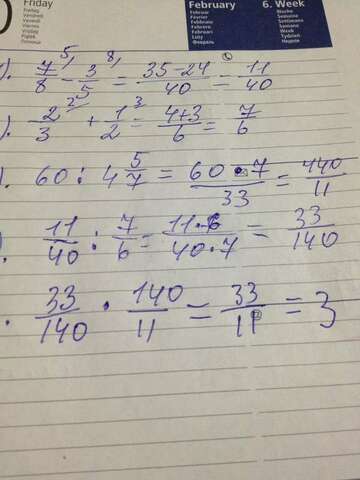 Friday
Freitag
Vendredi
Viernes
Venerdì
Piątek
Пятница
February
Februar
Février
Febrero
Febbraio
Luty
Февраль
6. Week
Woche
Semaine
Semana
Settimana
Tydzień
Неделя
7/8 5/ - 3/5 8/ = 35-24/40 = 11/40
). 2/3 2/ + 1/2 3/ = 4+3/6 = 7/6
). 60 : 4 5/7 = 60·7/33 = 140/11
) 11/40 : 7/6 = 11·6/40·7 = 33/140
. 33/140 · 140/11 = 33/11 = 3